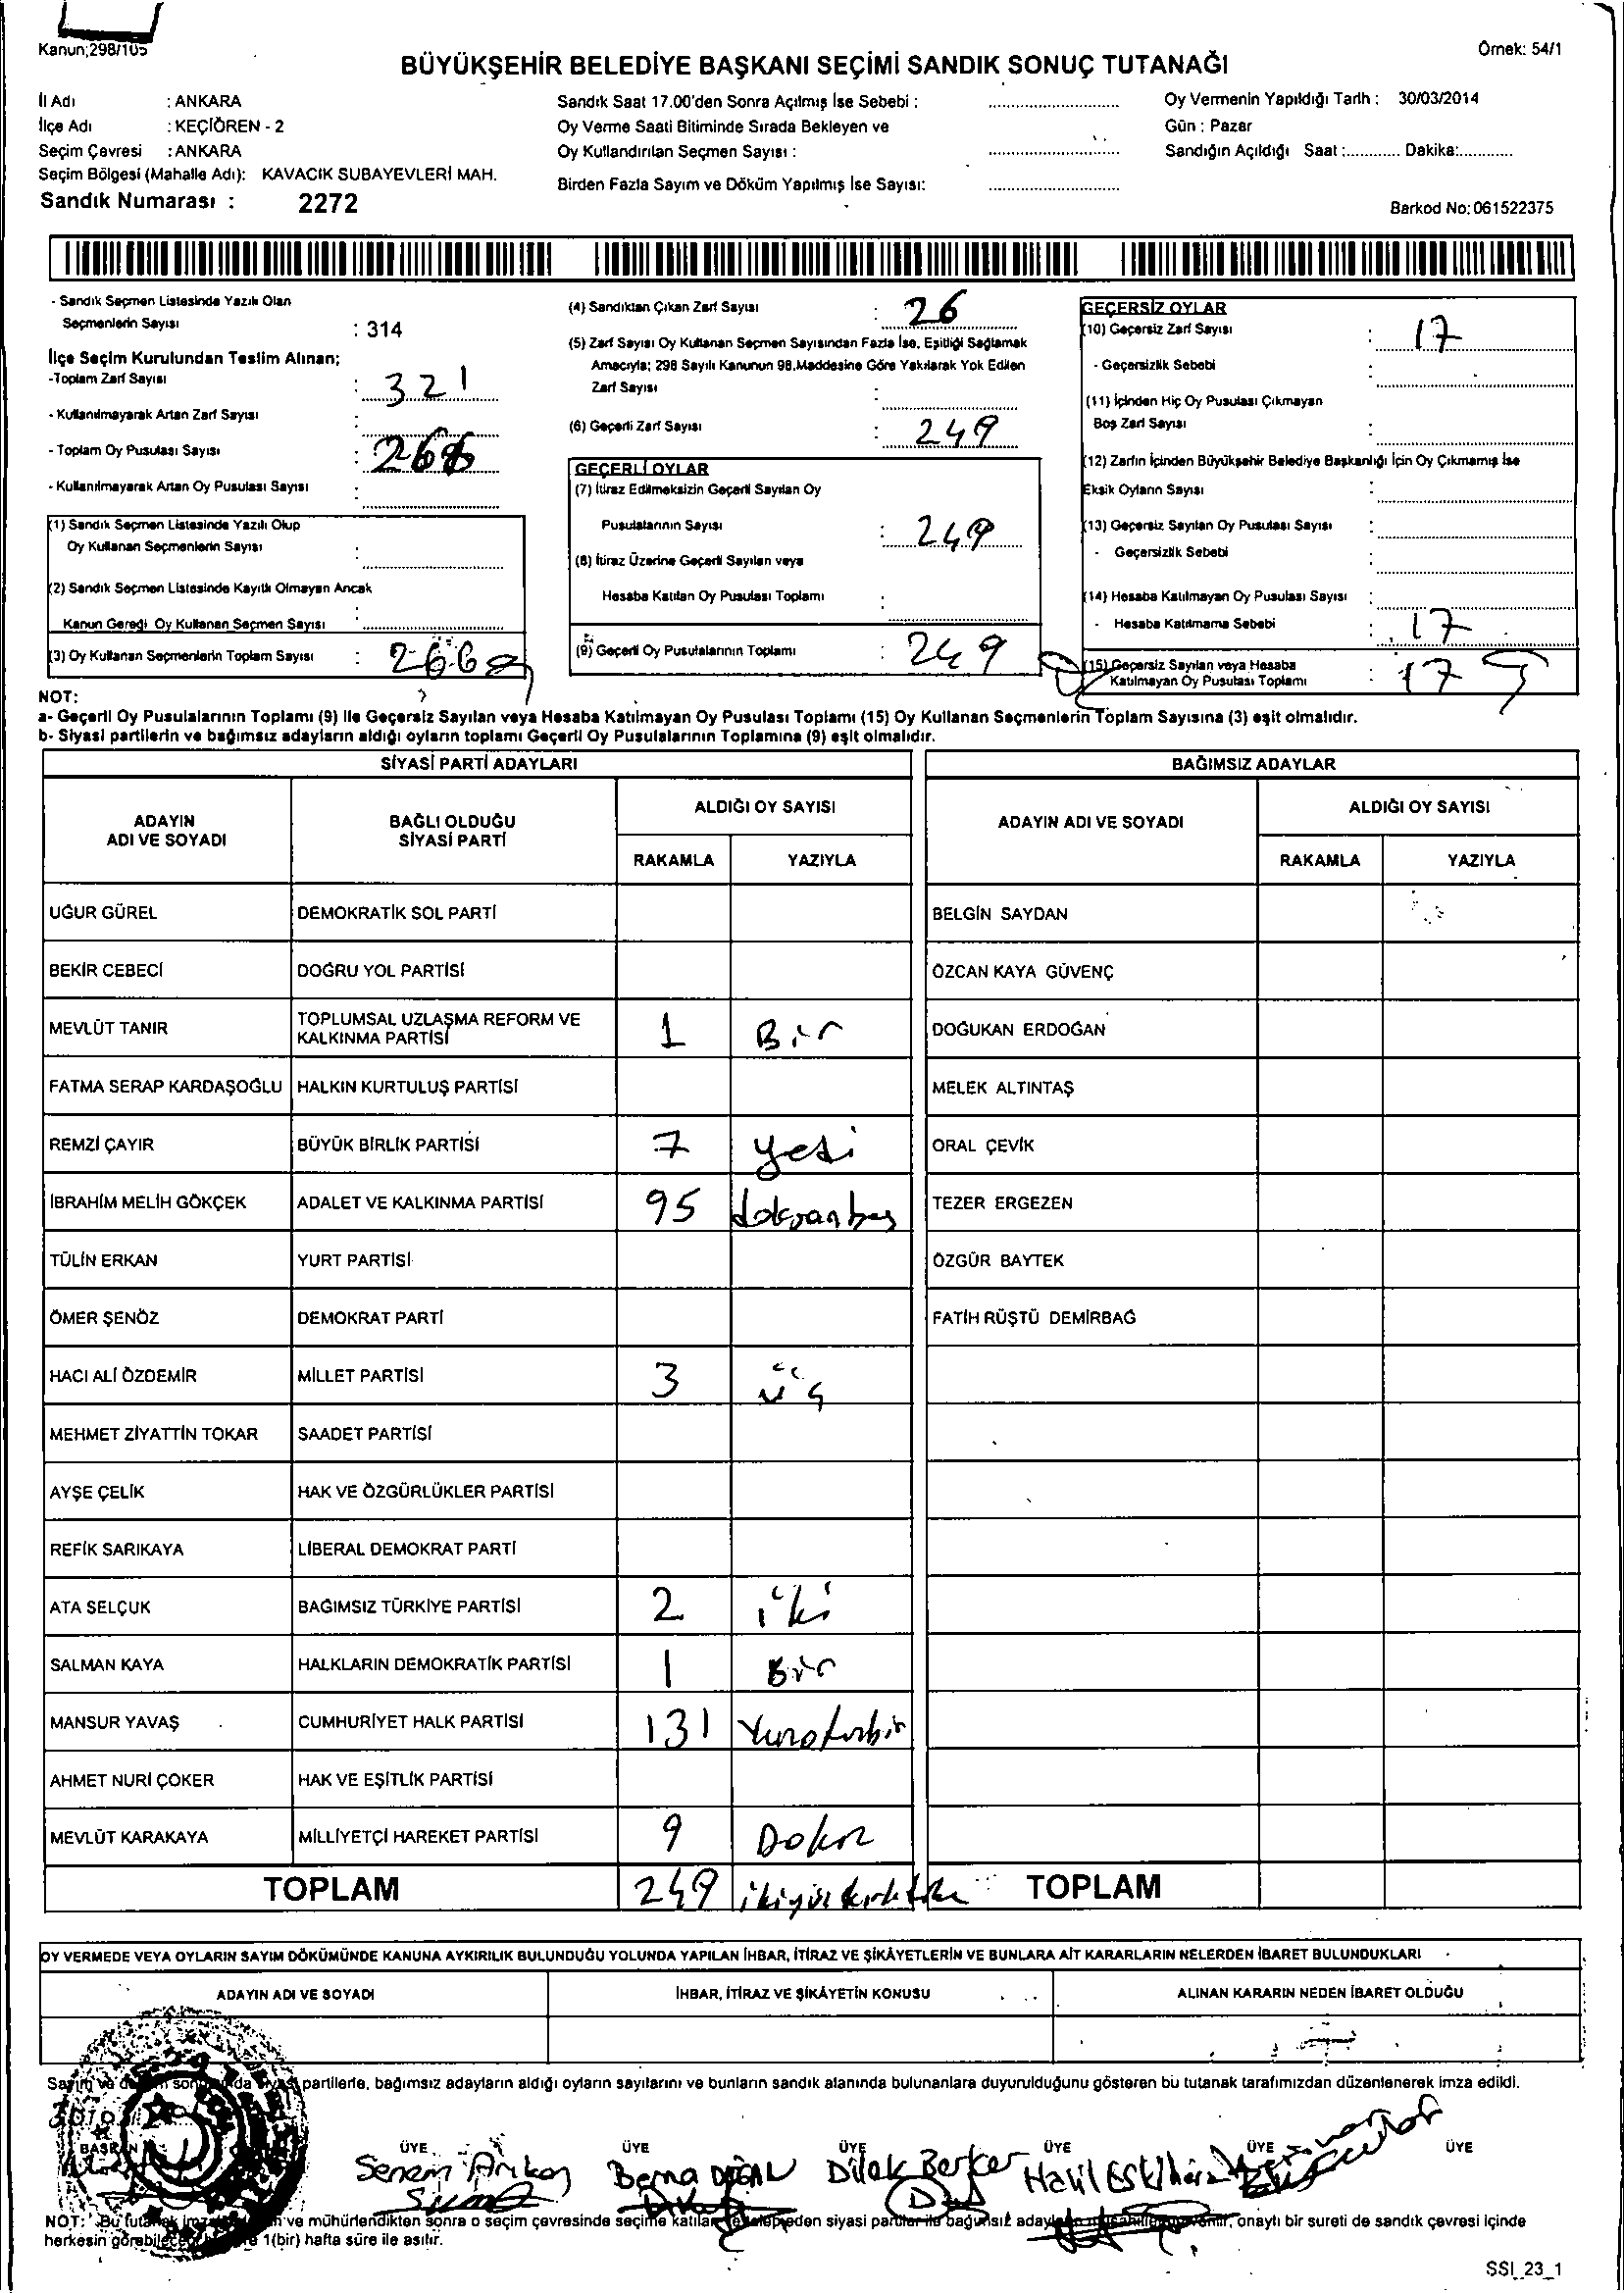 Kanun;298/105
Örnek: 54/1
BÜYÜKŞEHİR BELEDİYE BAŞKANI SEÇİMİ SANDIK SONUÇ TUTANAĞI
İl Adı : ANKARA
İlçe Adı : KEÇİÖREN - 2
Seçim Çevresi : ANKARA
Seçim Bölgesi (Mahalle Adı): KAVACIK SUBAYEVLERİ MAH.
Sandık Numarası : 2272
Sandık Saat 17.00'den Sonra Açılmış İse Sebebi :
Oy Verme Saati Bitiminde Sırada Bekleyen ve
Oy Kullandırılan Seçmen Sayısı :
Birden Fazla Sayım ve Döküm Yapılmış İse Sayısı:
Oy Vermenin Yapıldığı Tarih : 30/03/2014
Gün : Pazar
Sandığın Açıldığı Saat :............ Dakika:............
Barkod No: 061522375
- Sandık Seçmen Listesinde Yazılı Olan
Seçmenlerin Sayısı : 314
İlçe Seçim Kurulundan Teslim Alınan;
-Toplam Zarf Sayısı : 321
- Kullanılmayarak Artan Zarf Sayısı :
- Toplam Oy Pusulası Sayısı :
- Kullanılmayarak Artan Oy Pusulası Sayısı :
(1) Sandık Seçmen Listesinde Yazılı Olup
Oy Kullanan Seçmenlerin Sayısı :
(2) Sandık Seçmen Listesinde Kayıtlı Olmayan Ancak
Kanun Gereği Oy Kullanan Seçmen Sayısı :
(3) Oy Kullanan Seçmenlerin Toplam Sayısı : 266
(4) Sandıktan Çıkan Zarf Sayısı : 26
(5) Zarf Sayısı Oy Kullanan Seçmen Sayısından Fazla İse, Eşitliği Sağlamak
Amacıyla; 298 Sayılı Kanunun 98.Maddesine Göre Yakılarak Yok Edilen
Zarf Sayısı :
(6) Geçerli Zarf Sayısı : 249
GEÇERLİ OYLAR
(7) İtiraz Edilmeksizin Geçerli Sayılan Oy
Pusulalarının Sayısı : 249
(8) İtiraz Üzerine Geçerli Sayılan veya
Hesaba Katılan Oy Pusulası Toplamı :
(9) Geçerli Oy Pusulalarının Toplamı : 249
GEÇERSİZ OYLAR
(10) Geçersiz Zarf Sayısı : 17
- Geçersizlik Sebebi :
(11) İçinden Hiç Oy Pusulası Çıkmayan
Boş Zarf Sayısı :
(12) Zarfın İçinden Büyükşehir Belediye Başkanlığı İçin Oy Çıkmamış İse
Eksik Oyların Sayısı :
(13) Geçersiz Sayılan Oy Pusulası Sayısı :
- Geçersizlik Sebebi :
(14) Hesaba Katılmayan Oy Pusulası Sayısı :
- Hesaba Katılmama Sebebi : 17
(15) Geçersiz Sayılan veya Hesaba
Katılmayan Oy Pusulası Toplamı : 17
NOT:
a- Geçerli Oy Pusulalarının Toplamı (9) ile Geçersiz Sayılan veya Hesaba Katılmayan Oy Pusulası Toplamı (15) Oy Kullanan Seçmenlerin Toplam Sayısına (3) eşit olmalıdır.
b- Siyasi partilerin ve bağımsız adayların aldığı oyların toplamı Geçerli Oy Pusulalarının Toplamına (9) eşit olmalıdır.
SİYASİ PARTİ ADAYLARI
BAĞIMSIZ ADAYLAR
ADAYIN
ADI VE SOYADI
BAĞLI OLDUĞU
SİYASİ PARTİ
ALDIĞI OY SAYISI
RAKAMLA YAZIYLA
ADAYIN ADI VE SOYADI
ALDIĞI OY SAYISI
RAKAMLA YAZIYLA
UĞUR GÜREL DEMOKRATİK SOL PARTİ BELGİN SAYDAN
BEKİR CEBECİ DOĞRU YOL PARTİSİ ÖZCAN KAYA GÜVENÇ
MEVLÜT TANIR TOPLUMSAL UZLAŞMA REFORM VE
KALKINMA PARTİSİ 1 Bir DOĞUKAN ERDOĞAN
FATMA SERAP KARDAŞOĞLU HALKIN KURTULUŞ PARTİSİ MELEK ALTINTAŞ
REMZİ ÇAYIR BÜYÜK BİRLİK PARTİSİ 7 yedi ORAL ÇEVİK
İBRAHİM MELİH GÖKÇEK ADALET VE KALKINMA PARTİSİ 95 doksanbeş TEZER ERGEZEN
TÜLİN ERKAN YURT PARTİSİ ÖZGÜR BAYTEK
ÖMER ŞENÖZ DEMOKRAT PARTİ FATİH RÜŞTÜ DEMİRBAĞ
HACI ALİ ÖZDEMİR MİLLET PARTİSİ 3 üç
MEHMET ZİYATTİN TOKAR SAADET PARTİSİ
AYŞE ÇELİK HAK VE ÖZGÜRLÜKLER PARTİSİ
REFİK SARIKAYA LİBERAL DEMOKRAT PARTİ
ATA SELÇUK BAĞIMSIZ TÜRKİYE PARTİSİ 2 iki
SALMAN KAYA HALKLARIN DEMOKRATİK PARTİSİ 1 Bir
MANSUR YAVAŞ CUMHURİYET HALK PARTİSİ 131
AHMET NURİ ÇOKER HAK VE EŞİTLİK PARTİSİ
MEVLÜT KARAKAYA MİLLİYETÇİ HAREKET PARTİSİ 9 Dokuz
TOPLAM 249 TOPLAM
OY VERMEDE VEYA OYLARIN SAYIM DÖKÜMÜNDE KANUNA AYKIRILIK BULUNDUĞU YOLUNDA YAPILAN İHBAR, İTİRAZ VE ŞİKÂYETLERİN VE BUNLARA AİT KARARLARIN NELERDEN İBARET BULUNDUKLARI
ADAYIN ADI VE SOYADI İHBAR, İTİRAZ VE ŞİKÂYETİN KONUSU ALINAN KARARIN NEDEN İBARET OLDUĞU
Sayım ve partilerle, bağımsız adayların aldığı oyların sayılarını ve bunların sandık alanında bulunanlara duyurulduğunu gösteren bu tutanak tarafımızdan düzenlenerek imza edildi.
BAŞKAN ÜYE ÜYE ÜYE ÜYE ÜYE ÜYE
Senem Arıkan Berna DOĞAN Dilek Berker Halil
NOT: Bu tutanak ve mühürlendikten sonra o seçim çevresinde seçime katılan siyasi partiler ile bağımsız onaylı bir sureti de sandık çevresi içinde
herkesin 1(bir) hafta süre ile asılır.
SSİ_23_1